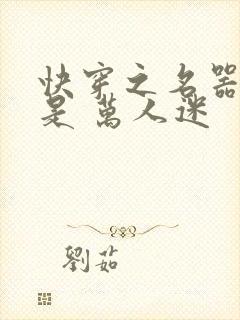 快穿之名器
是萬人迷
劉茹